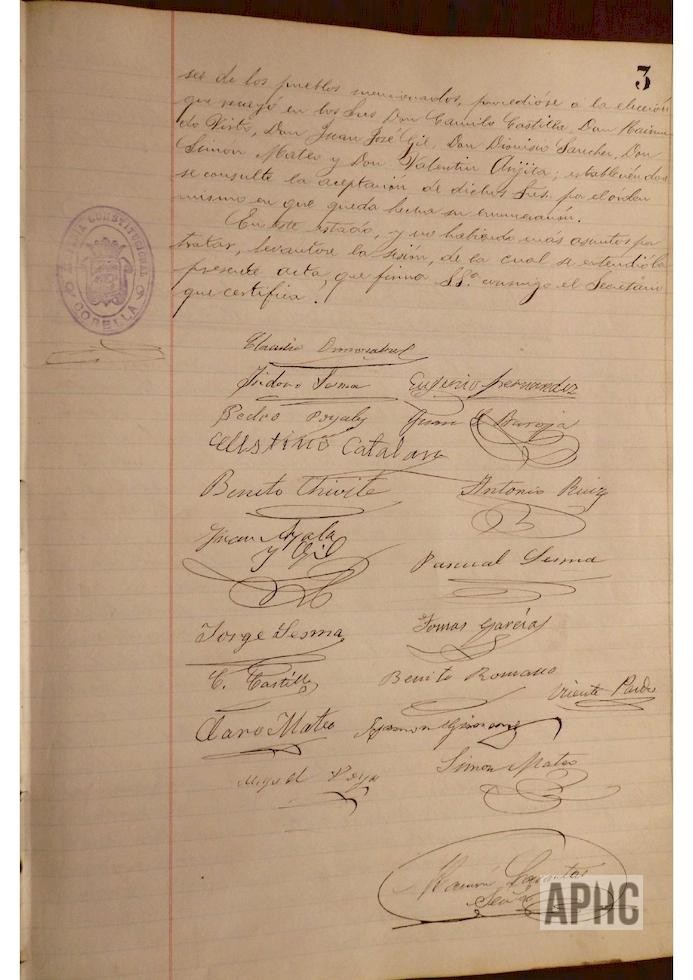 3
ses de los pueblos mencionados, procedióse a la elección
que recayó en los Sres Don Camilo Castilla, Don Raimun-
do Virto, Don Juan José Gil, Don Dionisio Sanchez, Don
Simón Mateo y Don Valentín Arijita; estableciéndose
se consulte la aceptación de dichos Sres. por el órden
mismo en que queda hecha su enumeración.
En este estado, y no habiendo más asuntos por
tratar, levantóse la sesión, de la cual se extendió la
presente acta, que firma S.S.ª conmigo el Secretario
que certifica.
ALCALDIA CONSTITUCIONAL
CORELLA
Claudio
Isidoro Sesma Eugenio Hernandez
Pedro Poyales Juan S. Baroja
Celestino Catalan
Benito Chivite Antonio Ruiz
Juan Ayala
y Gil
Pascual Sesma
Jorge Sesma Tomas García
C. Castilla Benito Romano
Vicente Pardo
Claro Mateo Ramon Gimenez
Miguel Simon Mateo
Ramón
Srio
APHC